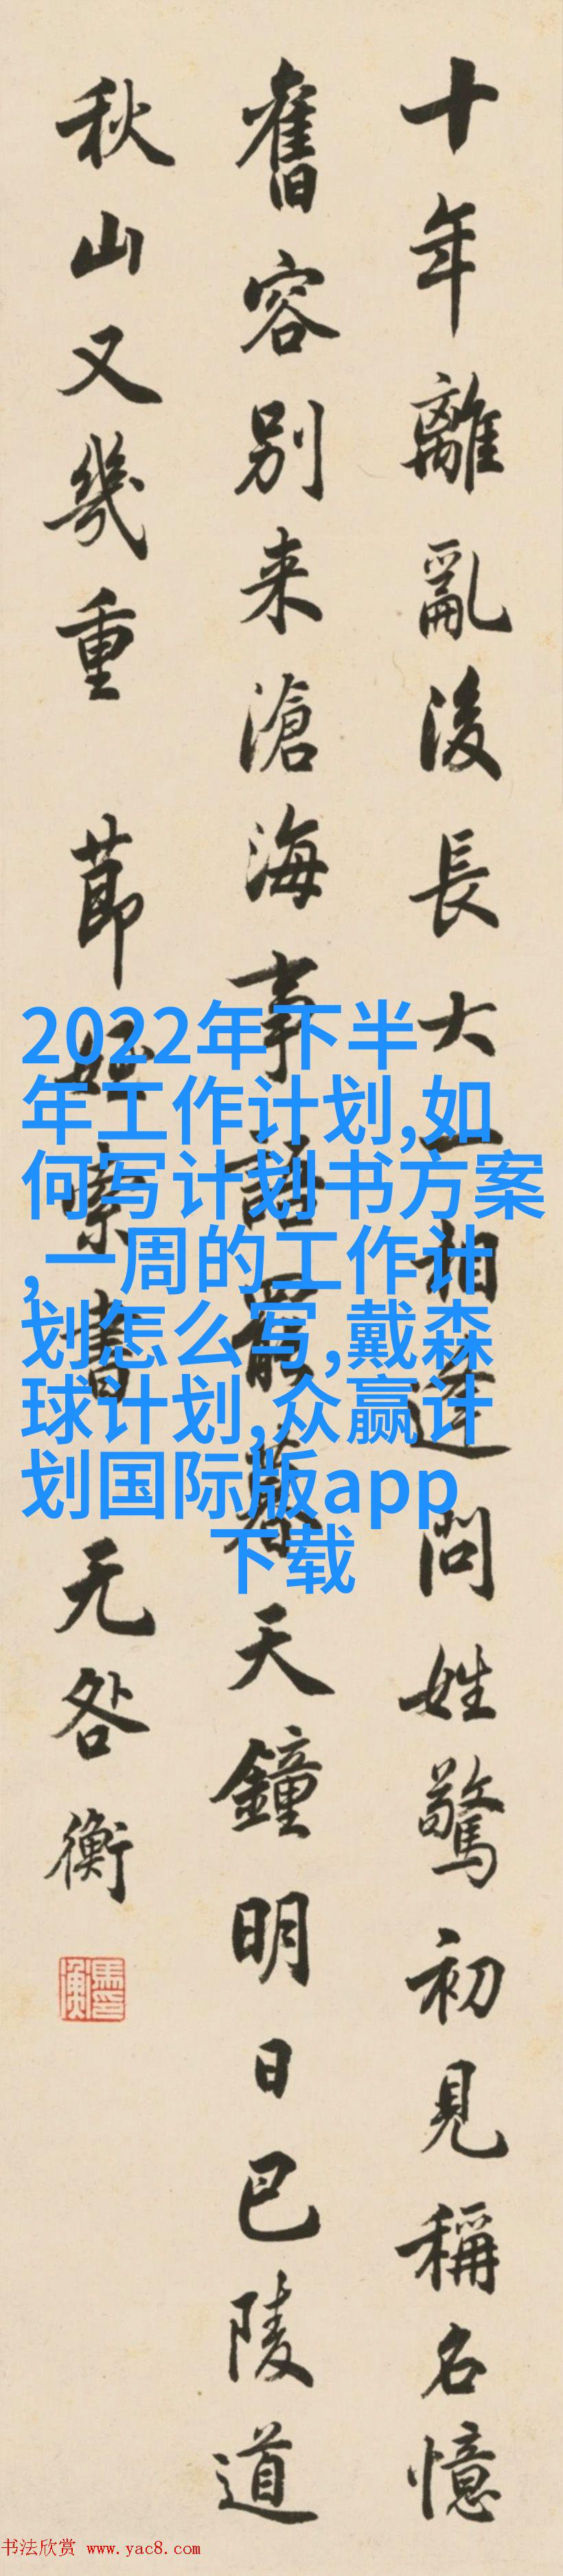 十年離亂後長大一相逢問姓驚初見稱名憶
舊容別来滄海事語罷暮天鐘明日巴陵道
秋山又幾重 莭姪索書 无咎衡
馬衡印
2022年下半
年工作计划,如
何写计划书方案
,一周的工作计
划怎么写,戴森
球计划,众赢计
划国际版app
下载
书法欣赏 www.yac8.com